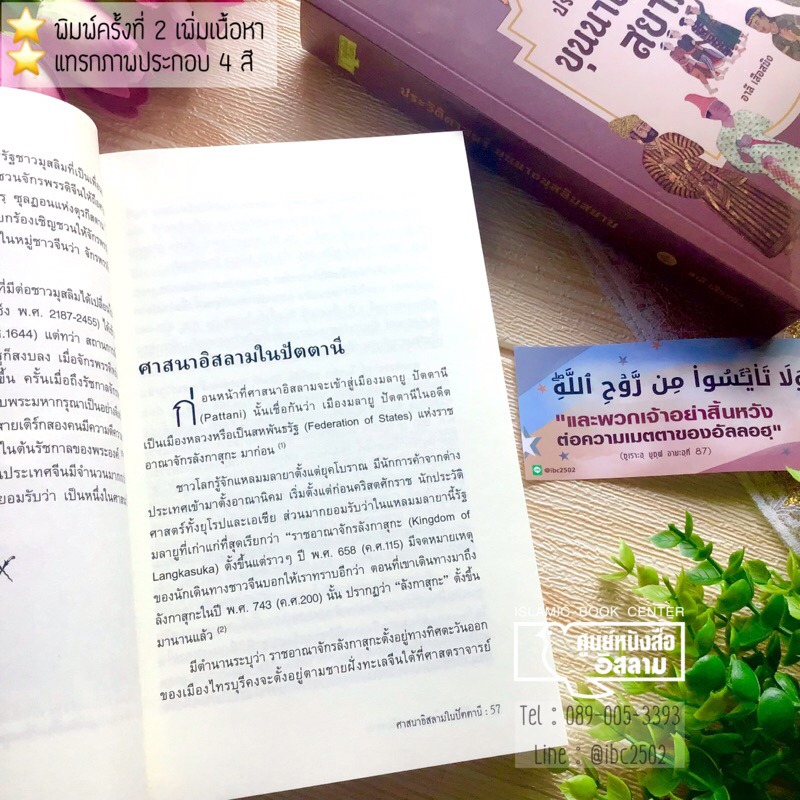 พิมพ์ครั้งที่ 2 เพิ่มเนื้อหา
แทรกภาพประกอบ 4 สี
ขุนนาง
สยาม
อาลี เสือสมิง
ประวัติศาสตร์ ขุนนางมุสลิมสยาม
รัฐชาวมุสลิมที่เป็น
ชวนจักรพรรดิจีนให้
ซุลฏอนแห่งตุรกี
กร้องเชิญชวนให้จักร
ในหมู่ชาวจีนว่า จักรพร
ที่มีต่อชาวมุสลิมได้เปลี่ยน
พ.ศ. 2187-2455) ได้
ศ.1644) แต่ทว่า สถานการ
ก็สงบลง เมื่อจักรพรรดิ
ขึ้น ครั้นเมื่อถึงรัชกาล
บพระมหากรุณาเป็นอย่าง
ายเติร์กสองคนมีความดี
ในต้นรัชกาลของพระองค์
ประเทศจีนมีจำนวนมาก
ยอมรับว่า เป็นหนึ่งใน
ศาสนาอิสลามในปัตตานี
ก่อนหน้าที่ศาสนาอิสลามจะเข้าสู่เมืองมลายู ปัตตานี
(Pattani) นั้นเชื่อกันว่า เมืองมลายู ปัตตานีในอดีต
เป็นเมืองหลวงหรือเป็นสหพันธรัฐ (Federation of States) แห่งราช
อาณาจักรลังกาสุกะ มาก่อน (1)
ชาวโลกรู้จักแหลมมลายาตั้งแต่ยุคโบราณ มีนักการค้าจากต่าง
ประเทศเข้ามาตั้งอาณานิคม เริ่มตั้งแต่ก่อนคริสตศักราช นักประวัติ
ศาสตร์ทั้งยุโรปและเอเชีย ส่วนมากยอมรับว่าในแหลมมลายานี้รัฐ
มลายูที่เก่าแก่ที่สุดเรียกว่า "ราชอาณาจักรลังกาสุกะ (Kingdom of
Langkasuka) ตั้งขึ้นแต่ราวๆ ปี พ.ศ. 658 (ค.ศ.115) มีจดหมายเหตุ
ของนักเดินทางชาวจีนบอกให้เราทราบอีกว่า ตอนที่เขาเดินทางมาถึง
ลังกาสุกะในปี พ.ศ. 743 (ค.ศ.200) นั้น ปรากฏว่า "ลังกาสุกะ" ตั้งขึ้น
มานานแล้ว (2)
มีตำนานระบุว่า ราชอาณาจักรลังกาสุกะตั้งอยู่ทางทิศตะวันออก
ของเมืองไทรบุรีคงจะตั้งอยู่ตามชายฝั่งทะเลจีนใต้ที่ศาสตราจารย์
ศาสนาอิสลามในปัตตานี : 57
وَلَا تَا۟يْـَٔسُوا۟ مِن رَّوْحِ ٱللَّهِ ۖ
"และพวกเจ้าอย่าสิ้นหวัง
ต่อความเมตตาของอัลลอฮฺ"
(ซูเราะฮฺ ยูซุฟ อายะฮฺที่ 87)
@ibc2502
ISLAMIC BOOK CENTER
ศูนย์หนังสือ
อิสลาม
Tel : 089-005-3393
Line : @ibc2502